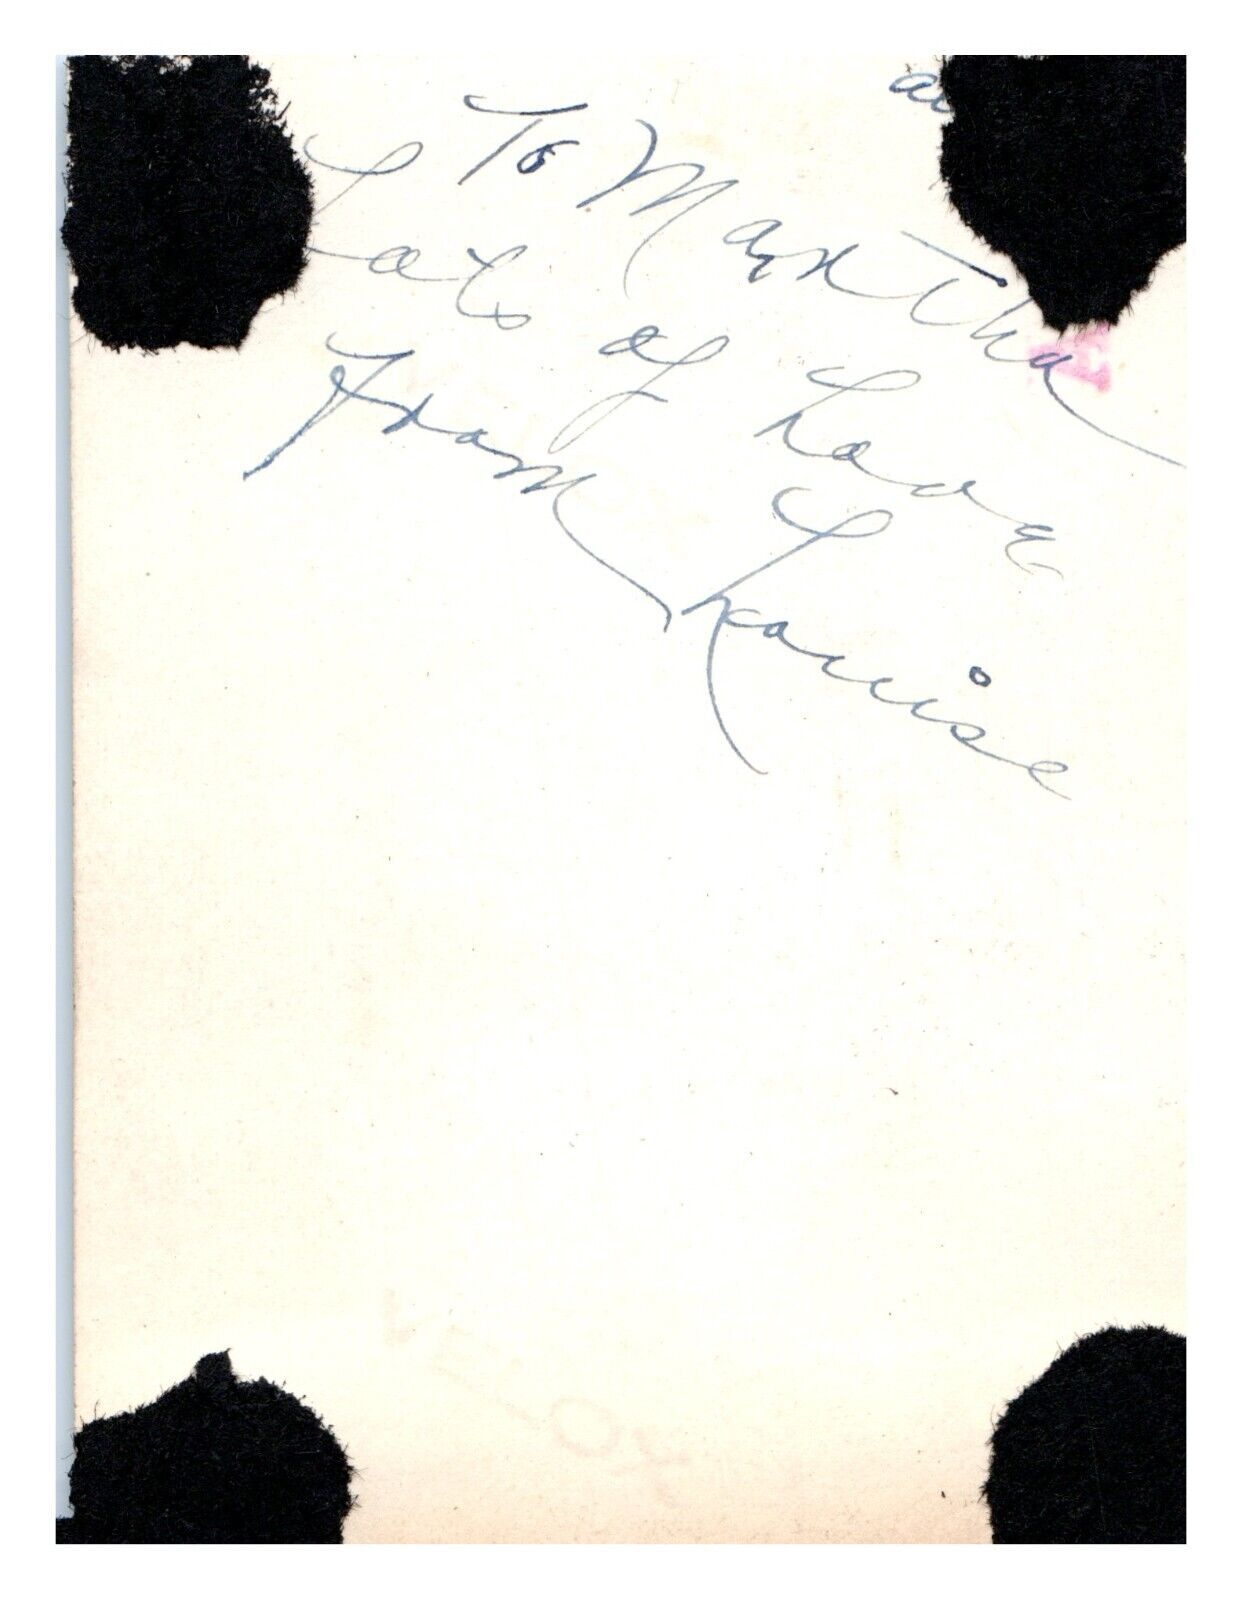 To Martha
Lots of Love
From Louise
VELOX